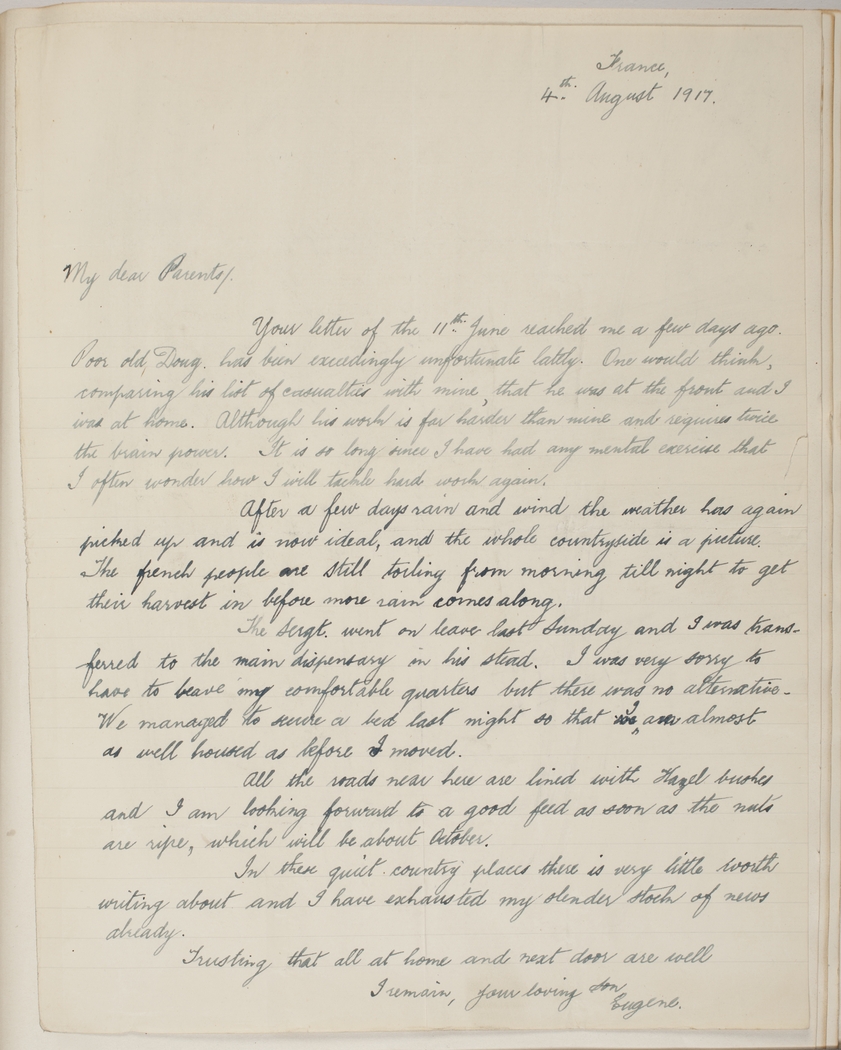 France,
4th. August 1917.
My dear Parents/.
Your letter of the 11th. June reached me a few days ago.
Poor old, Doug. has been exceedingly unfortunate lately. One would think,
comparing his list of casualties with mine, that he was at the front and I
was at home. Although his work is far harder than mine and requires twice
the brain power. It is so long since I have had any mental exercise that
I often wonder how I will tackle hard work again.
After a few days rain and wind the weather has again
picked up and is now ideal, and the whole countryside is a picture.
The french people are still toiling from morning till night to get
their harvest in before more rain comes along.
The Sergt. went on leave last Sunday and I was trans-
ferred to the main dispensary in his stead. I was very sorry to
have to leave my comfortable quarters but there was no alternative.
We managed to secure a bed last night so that I am almost
as well housed as before I moved.
All the roads near here are lined with Hazel bushes
and I am looking forward to a good feed as soon as the nuts
are ripe, which will be about October.
In these quiet country places there is very little worth
writing about and I have exhausted my slender stock of news
already.
Trusting that all at home and next door are well
I remain, your loving son
Eugene.